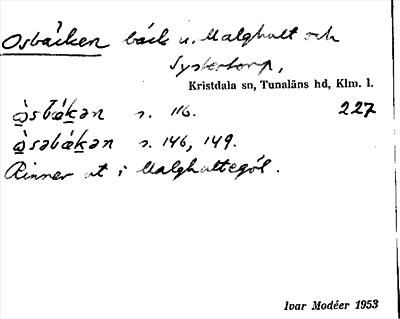 Osbäcken bäck u. Malghult och
Systertorp,
Kristdala sn, Tunaläns hd, Klm. l.
s. 116. 227
s. 146, 149.
Rinner ut i Malghultegöl.
Ivar Modéer 1953